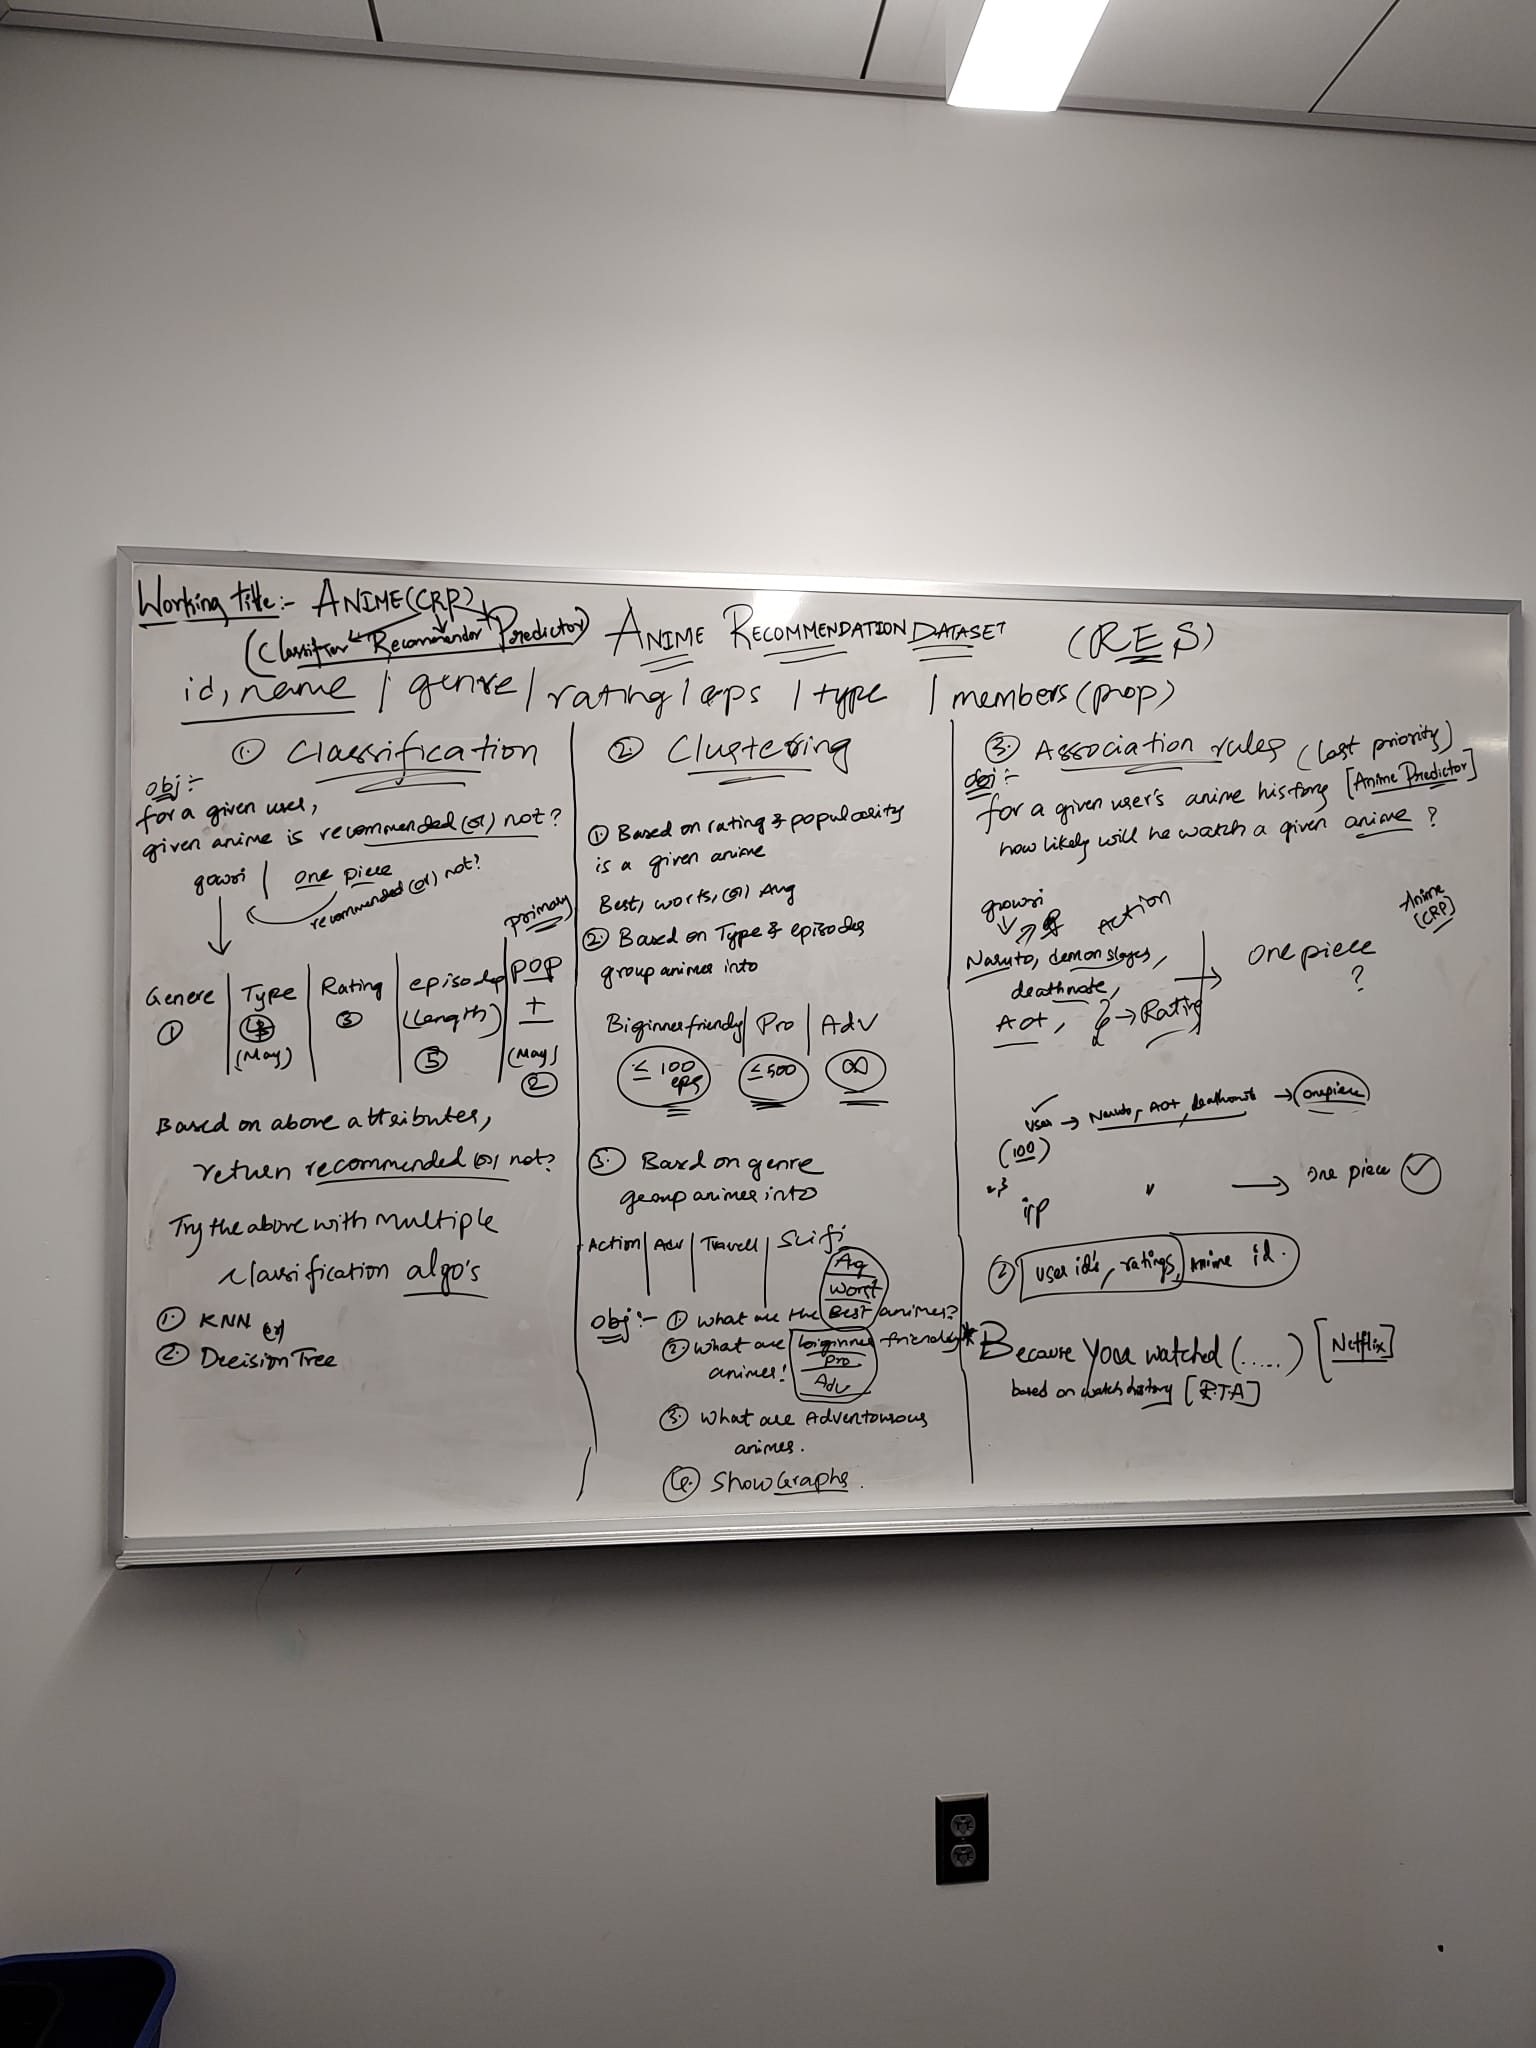 Working title:- ANIME(CRP)
(Classifier Recommendor Predictor)
ANIME RECOMMENDATION DATASET (RES)
id, name / genre / rating / eps / type / members (pop)
1. Classification
obj:-
for a given user,
given anime is recommended (or) not?
gowri | one piece
recommended (or) not?
primary
Genere | Type | Rating | episodes | POP
(Length) +
① ③ (May) (May)
⑤ ②
Based on above attributes,
return recommended (or) not?
Try the above with multiple
classification algo's
1. KNN (or)
2. Decision Tree
2. Clustering
① Based on rating & popularity
is a given anime
Best, worts, (or) Avg
② Based on Type & episodes
group animes into
Biginner friendly | Pro | Adv
≤ 100 eps ≤ 500 ∞
3. Based on genre
group animes into
Action | Adv | Travell | Scifi
Avg
Worst
obj:- ① What are the Best animes?
② What are biginner friendly
animes! Pro
Adv
3. What are Adventourous
animes.
4. Show Graphs.
3. Association rules (last priority)
obj:-
for a given user's anime history [Anime Predictor]
how likely will he watch a given anime?
Anime
[CRP]
gowri
Action
Naruto, demon slayer, → One piece
deathnote, ?
AOT, → Rating
user → Naruto, AOT, deathnote → onepiece
(100)
i/p " → One piece ✓
② user id's, ratings, Anime id.
* Because you watched (.....) [Netflix]
based on watch history [R.T.A]